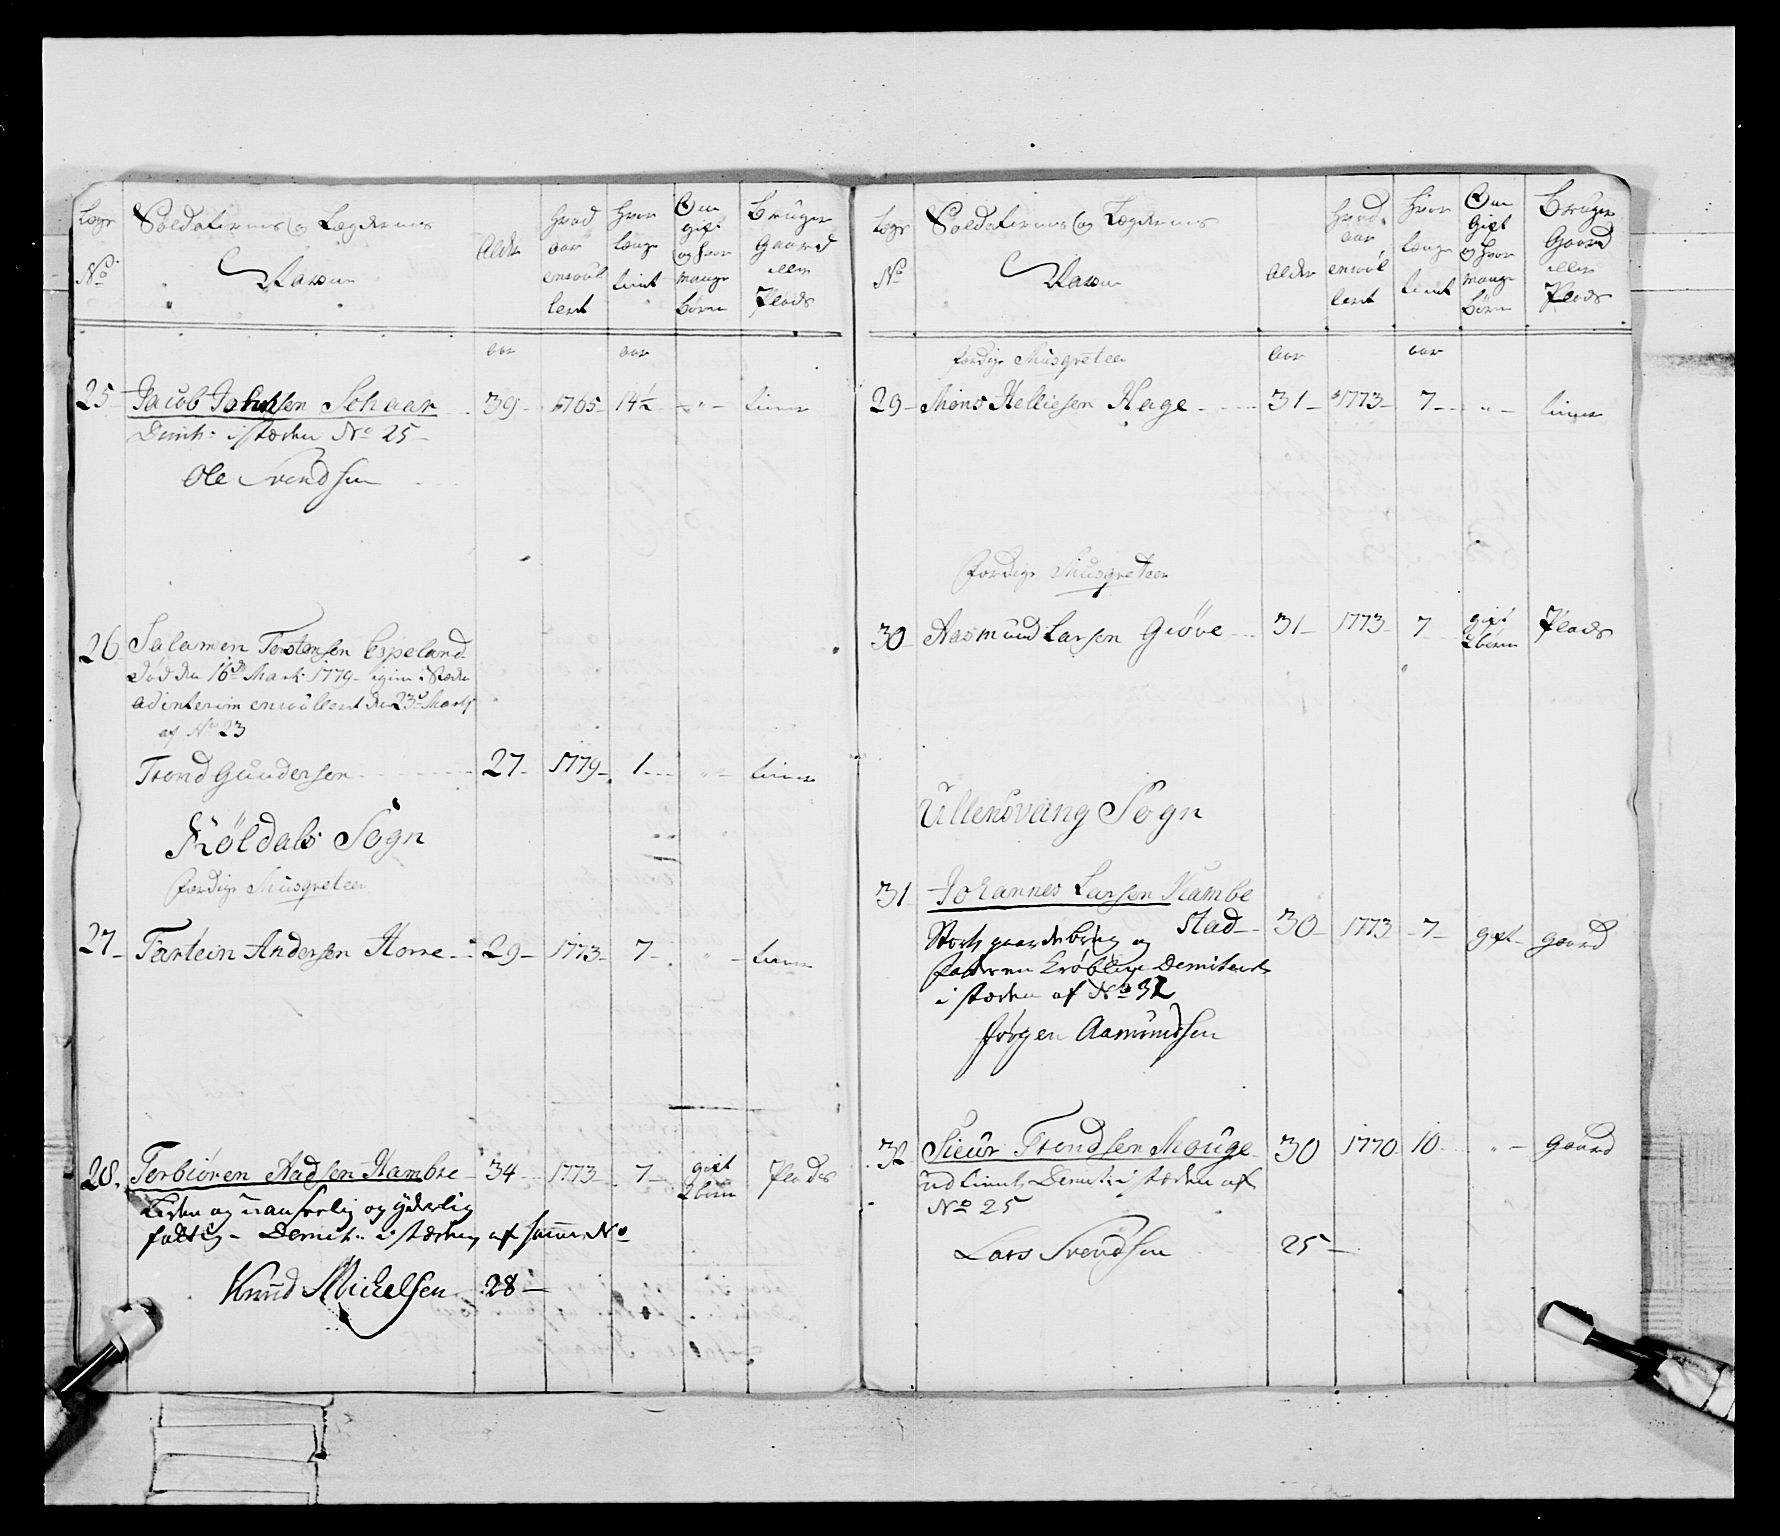 Lægs No
Soldaternes og Lægdernes Navne
Alder
hvad aar enroulleret
hvor længe tient
Om gift og hvor mange børn
Bruger Gaard eller Plads
aar aar
25 Jacob Johnsen Schaar 39 1765 14½ „ tiener
Dimit: i stæden No 25
Ole Svendsen
26 Salamon Torstensen Espeland
død den 16de Marti 1779 igien i Stæden
ad interim enroulleret den 23de Martj
af No 23
Trond Gundersen 27 1779 1 „ tiener
Röldals Sogn
færdige Musqueteer
27 Torstein Andersen Horre 29 1773 7 „ tiener
28 Torbiören Aadsen Hambre 34 1773 7 gift 2 børn Plads
Liden og uanseelig og yderlig
fattig Dimit: i stæden af samme No
Knud Michelsen 28
Lægs No
Soldaternes og Lægdernes Navne
Alder
hvad aar enroulleret
hvor længe tient
Om Gift og hvor mange børn
Bruger Gaard eller Plads
færdige Musqueteer aar aar
29 Mons Helliesen Hage 31 1773 7 „ tiener
færdige Musqueteer
30 Aasmund Larsen Giöve 31 1773 7 gift 2 børn Plads
Ullensvang Sogn
31 Johannes Larsen Hambe
stad 30 1773 7 gift gaard
Stort gaardebrug og
faderen Dimitert
i stæden af No 32
Jørgen Aamundsen
32 Sieur Trondsen Mouge 30 1770 10 „ gaard
udtient Dimit: i stæden af
No 25
Lars Svendsen 25